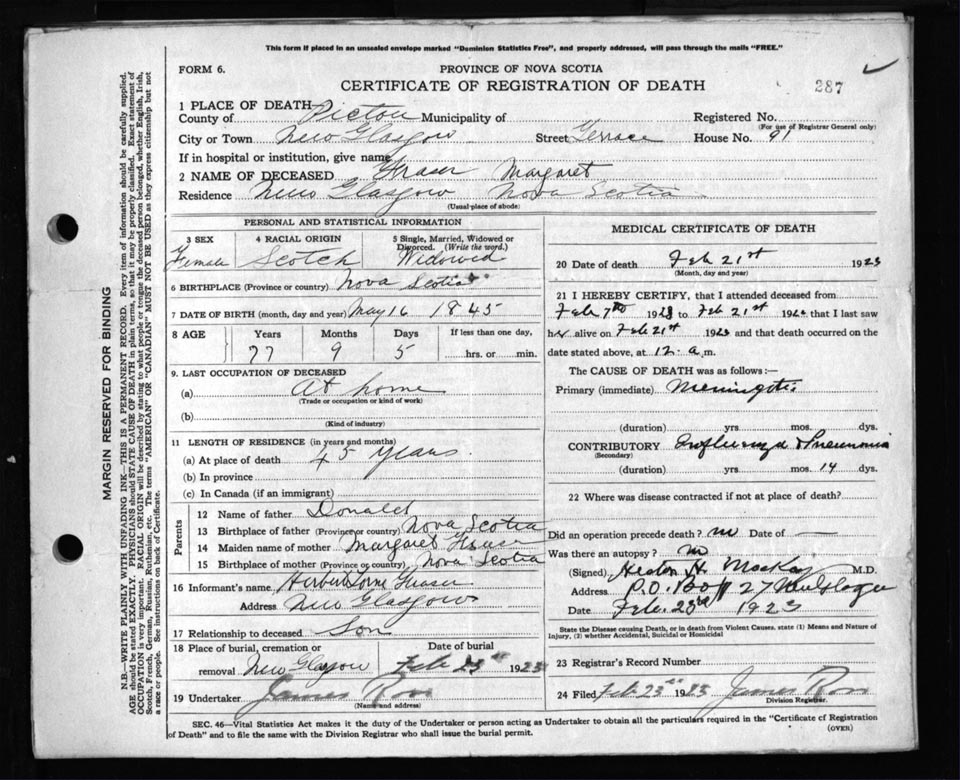 This form if placed in an unsealed envelope marked "Dominion Statistics Free", and properly addressed, will pass through the mails "FREE."
FORM 6.
PROVINCE OF NOVA SCOTIA
CERTIFICATE OF REGISTRATION OF DEATH
287
1 PLACE OF DEATH—
County of Pictou Municipality of Registered No.
(For use of Registrar General only)
City or Town New Glasgow Street Terrace House No. 91
If in hospital or institution, give name
2 NAME OF DECEASED Fraser Margaret
Residence New Glasgow Nova Scotia
(Usual place of abode)
PERSONAL AND STATISTICAL INFORMATION
3 SEX 4 RACIAL ORIGIN 5 Single, Married, Widowed or Divorced. (Write the word.)
Female Scotch Widowed
6 BIRTHPLACE (Province or country) Nova Scotia
7 DATE OF BIRTH (month, day and year) May 16 1845
8 AGE Years Months Days If less than one day,
77 9 5 hrs. or min.
9. LAST OCCUPATION OF DECEASED
(a) At home
(Trade or occupation or kind of work)
(b)
(Kind of industry)
11 LENGTH OF RESIDENCE (in years and months)
(a) At place of death 45 years
(b) In province
(c) In Canada (if an immigrant)
Parents
12 Name of father Donald
13 Birthplace of father (Province or country) Nova Scotia
14 Maiden name of mother Margaret Fraser
15 Birthplace of mother (Province or country) Nova Scotia
16 Informant's name Herbert Lorne Fraser
Address New Glasgow
17 Relationship to deceased Son
18 Place of burial, cremation or removal New Glasgow Date of burial Feb 23rd 1923
19 Undertaker James Ross
(Name and address)
MEDICAL CERTIFICATE OF DEATH
20 Date of death Feb 21st 1923
(Month, day and year)
21 I HEREBY CERTIFY, that I attended deceased from
Feb 7th 1923 to Feb 21st 192 that I last saw
her alive on Feb 21st 1923 and that death occurred on the
date stated above, at 12 a.m.
The CAUSE OF DEATH was as follows:—
Primary (immediate) Meningitis
(duration) yrs. mos. dys.
CONTRIBUTORY Influenza & Pneumonia
(Secondary)
(duration) yrs. mos. 14 dys.
22 Where was disease contracted if not at place of death?
Did an operation precede death? no Date of —
Was there an autopsy? no
(Signed) H. MacKay M.D.
Address P.O. Box 27 New Glasgow
Date Feb. 23rd 1923
State the Disease causing Death, or in death from Violent Causes, state (1) Means and Nature of Injury, (2) whether Accidental, Suicidal or Homicidal
23 Registrar's Record Number
24 Filed Feb 23rd 1923 James Ross
Division Registrar.
SEC. 46—Vital Statistics Act makes it the duty of the Undertaker or person acting as Undertaker to obtain all the particulars required in the "Certificate of Registration
of Death" and to file the same with the Division Registrar who shall issue the burial permit.
(OVER)
MARGIN RESERVED FOR BINDING
N.B—WRITE PLAINLY WITH UNFADING INK—THIS IS A PERMANENT RECORD. Every item of information should be carefully supplied.
AGE should be stated EXACTLY. PHYSICIANS should STATE CAUSE OF DEATH in plain terms, so that it may be properly classified. Exact statement of
OCCUPATION is very important. RACIAL ORIGIN will be described by stating to what people or tongue the deceased person belonged, whether English, Irish,
Scotch, French, German, Russian, Ruthenian, etc. The terms "AMERICAN" OR "CANADIAN" MUST NOT BE USED as they express citizenship but not
a race or people. See instructions on back of Certificate.